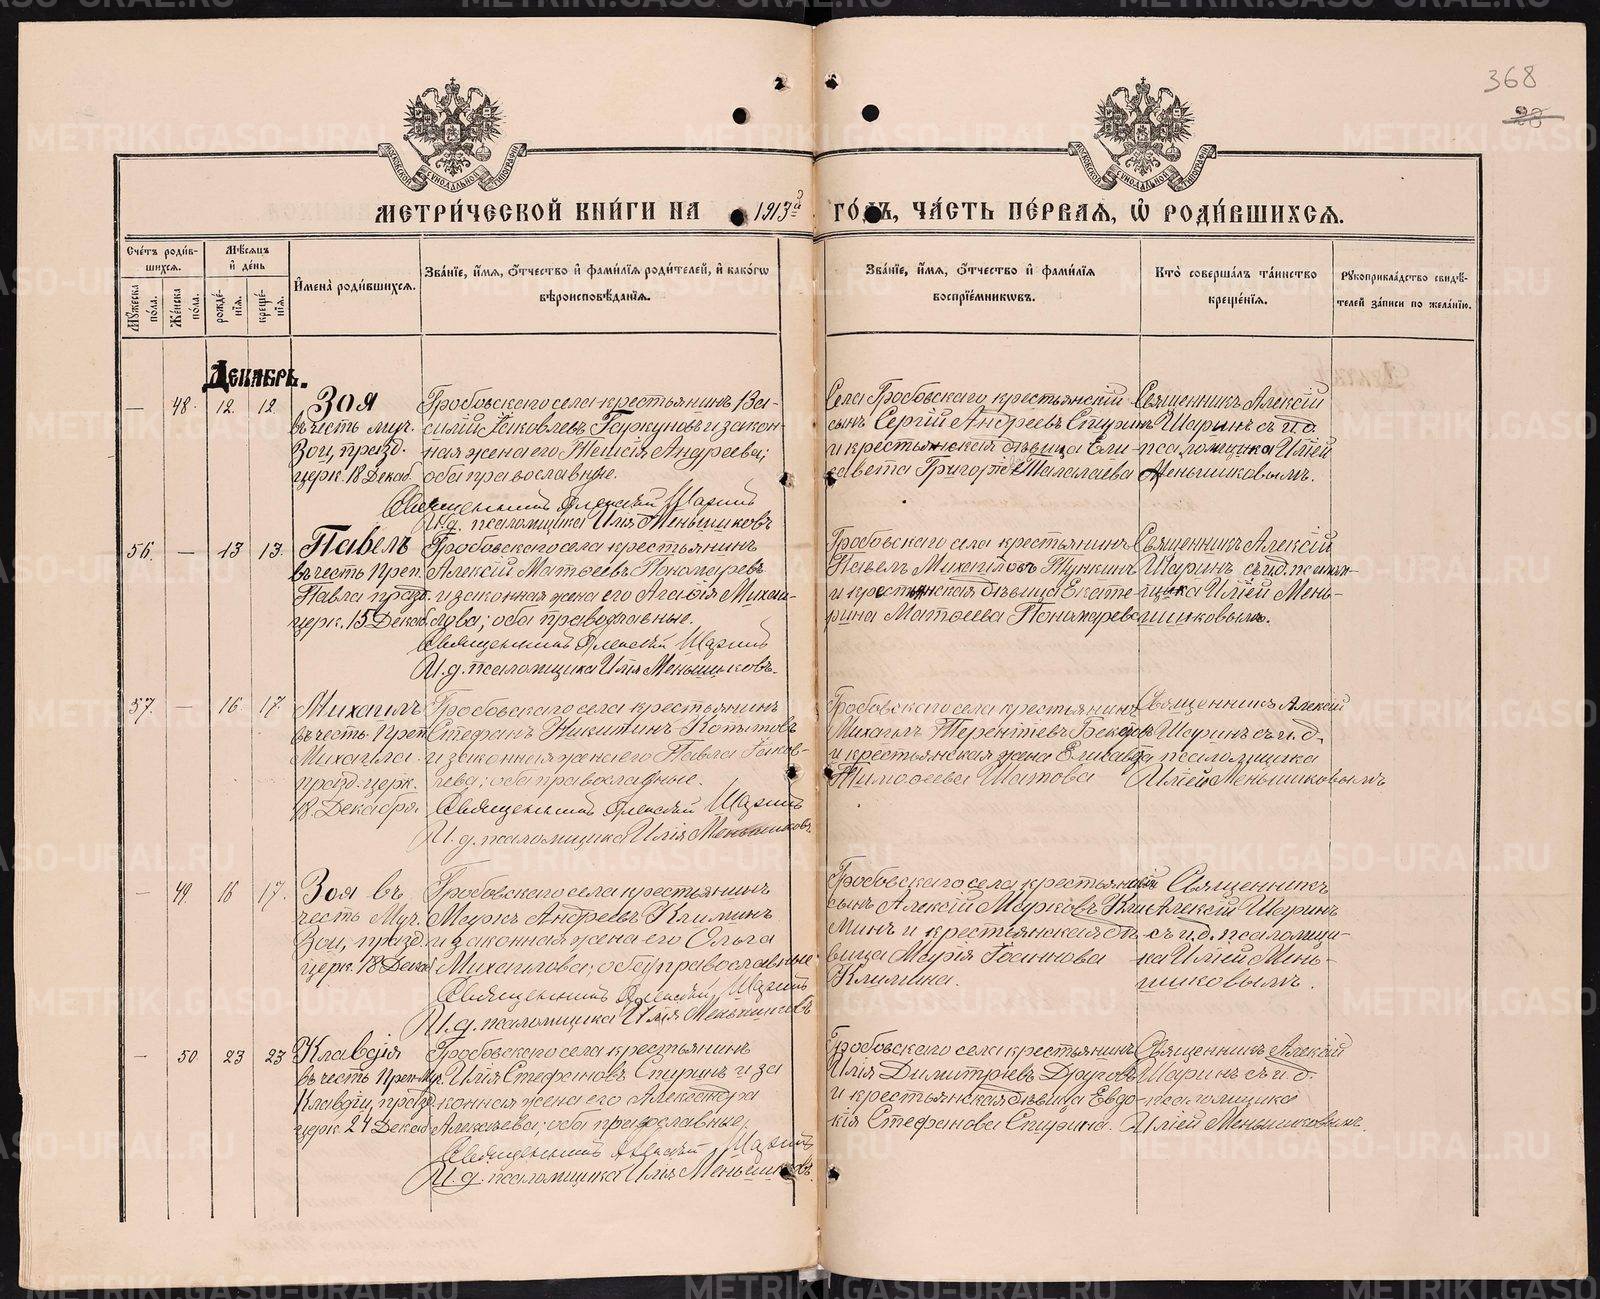 368
28
МЕТРИ́ЧЕСКОЙ КНИ́ГИ НА 1913й ГО́ДЪ, ЧА́СТЬ ПЕ́РВАЯ, Ѡ҆ РОДИ́ВШИХСЯ.
Сче́тъ роди́вшихся.
Му́жеска по́ла.
Же́нска по́ла.
Мѣ́сяцъ и҆ де́нь
рожде́нїя.
креще́нїя.
И҆мена̀ роди́вшихся.
Зва́нїе, и҆́мя, ѻ҆́тчество и҆ фами́лїя роди́телей, и҆ како́гѡ вѣроисповѣ́данїя.
Зва́нїе, и҆́мя, ѻ҆́тчество и҆ фами́лїя воспрїе́мникѡвъ.
Кто̀ соверша́лъ та́инство креще́нїя.
Рꙋкоприкла́дство свидѣ́телей за́писи по жела́нїю.
Декабрь.
— 48. 12. 12.
Зоя
въ честь муч.
Зои, празд.
церк. 18 Декаб.
Гробовскаго села крестьянинъ Ва-
силій Іаковлевъ Гаркуновъ и закон-
ная жена его Таисія Андреева;
оба православные.
Священникъ Алексій Шаринъ
И. д. псаломщика Илія Меньшиковъ
Села Гробовскаго крестьянскій
сынъ Сергій Андреевъ Спиринъ
и крестьянская дѣвица Ели-
савета Григорьева Талалаева
Священникъ Алексій
Шаринъ съ и. д.
псаломщика Иліей
Меньшиковымъ.
56. — 13 13.
Павелъ
въ честь Преп.
Павла празд.
церк. 15 Декаб.
Гробовскаго села крестьянинъ
Алексій Матѳеевъ Пономаревъ
и законная жена его Агафія Михаи-
лова; оба православные.
Священникъ Алексій Шаринъ
И. д. псаломщика Илія Меньшиковъ.
Гробовскаго села крестьянинъ
Павелъ Михаиловъ Пункинъ
и крестьянская дѣвица Екате-
рина Матѳеева Пономарева
Священникъ Алексій
Шаринъ съ и. д. псалом-
щика Иліей Мень-
шиковымъ.
57. — 16. 17.
Михаилъ
въ честь Преп.
Михаила
празд. церк.
18. Декабря.
Гробовскаго села крестьянинъ
Стефанъ Никитинъ Копытовъ
и законная жена его Павла Іаков-
лева; оба православные.
Священникъ Алексій Шаринъ
И. д. псаломщика Илія Меньшиковъ.
Гробовскаго села крестьянинъ
Михаилъ Терентіевъ
и крестьянская жена Елисавета
Тимоѳеева Шатова
Священникъ Алексій
Шаринъ съ и. д.
псаломщика
Иліей Меньшиковымъ
— 49. 16 17.
Зоя въ
честь Муч.
Зои, празд.
церк. 18 Декаб.
Гробовскаго села крестьянинъ
Маркъ Андреевъ Климинъ
и законная жена его Ольга
Михаилова; оба православные
Священникъ Алексій Шаринъ
И. д. псаломщика Илія Меньшиковъ
Гробовскаго села крестьянскій
сынъ Алексій Марковъ Кли-
минъ и крестьянская дѣ-
вица Марія Іоаннова
Климина.
Священникъ
Алексій Шаринъ
съ и. д. псаломщи-
ка Иліей Мень-
шиковымъ.
— 50 23 23
Клавдія
въ честь Преп-Муч.
Клавдіи, празд.
церк. 24 Декаб.
Гробовскаго села крестьянинъ
Илія Стефановъ Спиринъ и за
конная жена его Александра
Алексѣева; оба православные.
Священникъ Алексій Шаринъ
И. д. псаломщика Илія Меньшиковъ.
Гробовскаго села крестьянинъ
Илія Димитріевъ Друговъ
и крестьянская дѣвица Евдо-
кія Стефанова Спирина.
Священникъ Алексій
Шаринъ съ и. д.
псаломщика
Иліей Меньшиковымъ.
METRIKI.GASO-URAL.RU